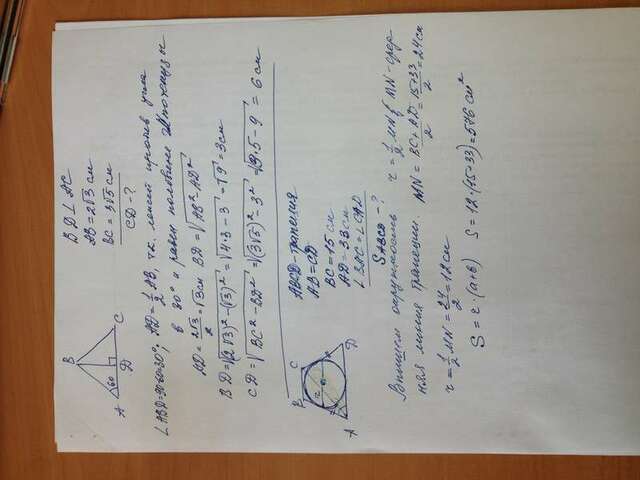 B
A 60° D C
BD ⊥ AC
AB = 2√3 см
BC = 3√5 см
CD - ?
∠ABD=90-60=30°; AD = 1/2 AB, т.к. лежит против угла
в 30° и равен половине гипотенузы
AD = 2√3/2 = √3 см BD = √AB² AD²
BD = √(2√3)² - (√3)² = √4·3 - 3 = √9 = 3 см
CD = √BC² - BD² = √(3√5)² - 3² = √9·5 - 9 = 6 см
B C
A D
ABCD - трапеция
AB = CD
BC = 15 см
AD = 33 см
∠BAC = ∠CAD
SABCD - ?
Впишем окружность r = 1/2 MN MN - сред
ная линия трапеции. MN = BC + AD/2 = 15+33/2 = 24 см
r = 1/2 MN = 24/2 = 12 см
S = r · (a+b) S = 12 · (15+33) = 576 см²